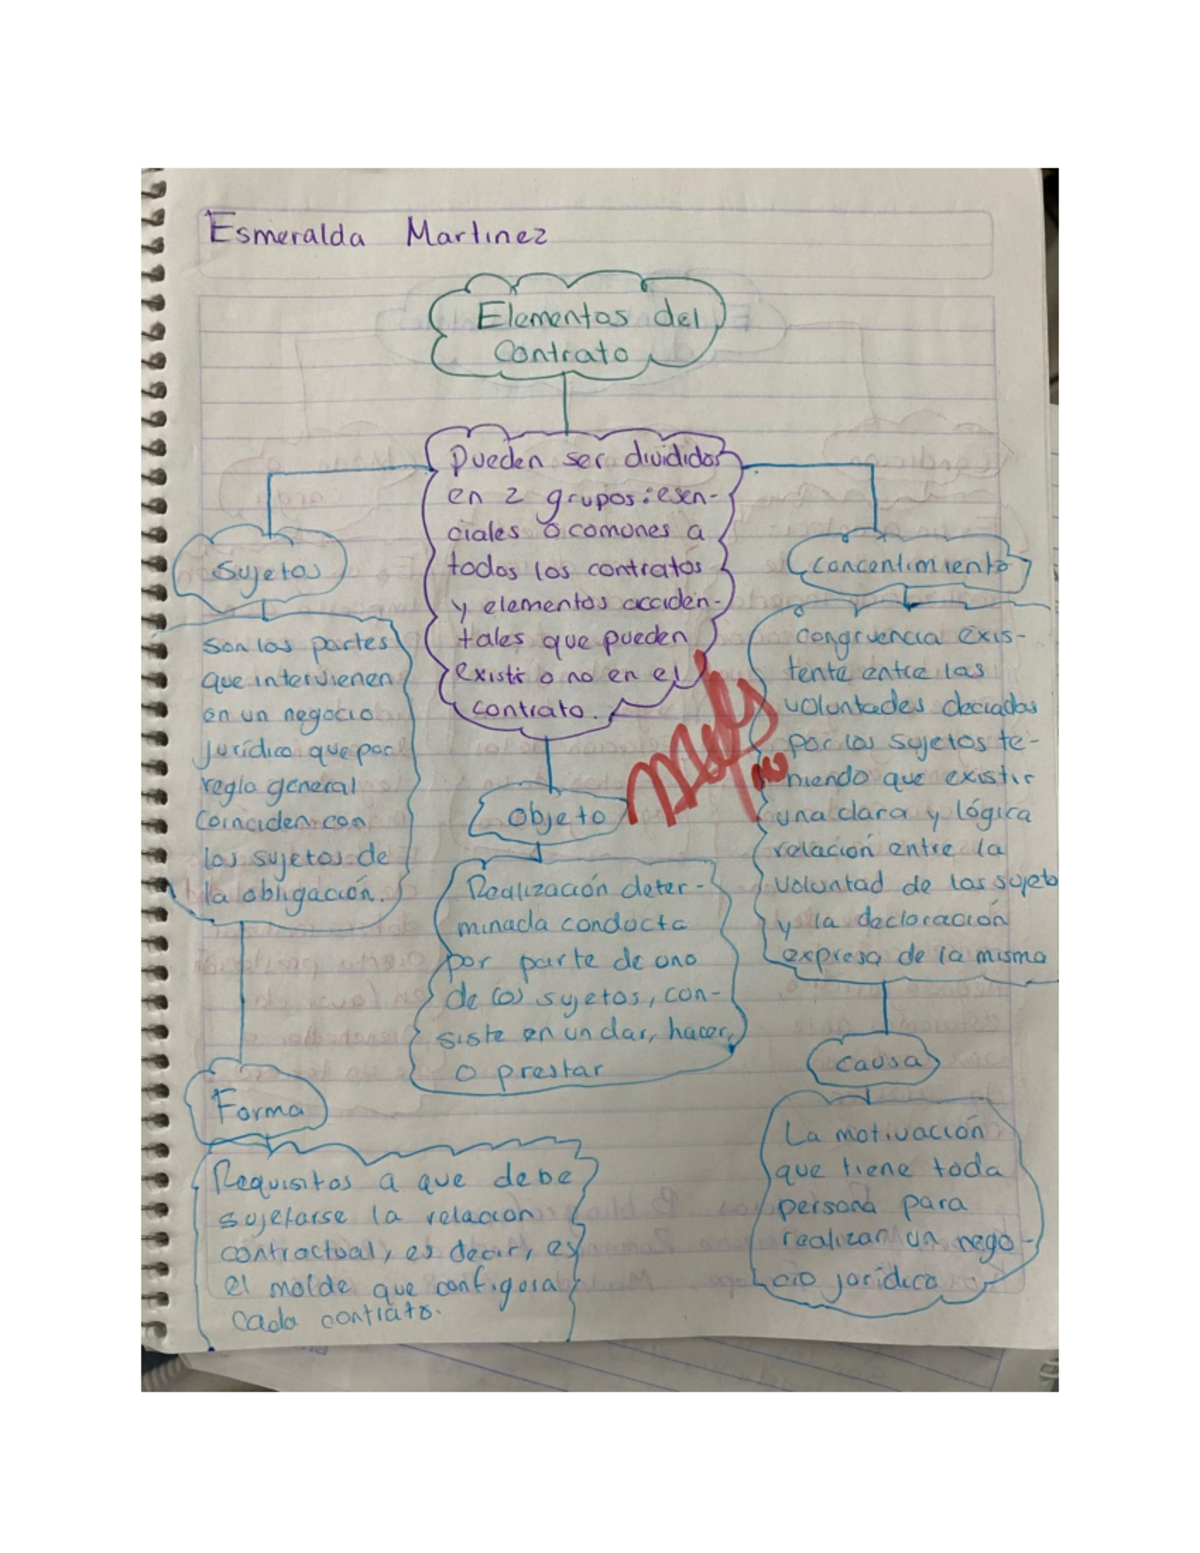 Esmeralda Martinez
Elementos del
Contrato
Pueden ser divididos
en 2 grupos: esen-
ciales o comunes a
todos los contratos
y elementos acciden-
tales que pueden
existir o no en el
contrato.
Sujetos
Son las partes
que intervienen
en un negocio
jurídico que por
regla general
Coinciden con
los sujetos de
la obligación.
Objeto
Realización deter-
minada conducta
por parte de uno
de los sujetos, con-
siste en un dar, hacer,
o prestar
Concentimiento
Congruencia exis-
tente entre las
voluntades deciadas
por los sujetos te-
niendo que existir
una clara y lógica
relación entre la
voluntad de los sujeto
y la declaración
expresa de la misma
Forma
Requisitos a que debe
sujetarse la relacion
contractual, es decir, es
el molde que configura
cada contrato.
Causa
La motivación
que tiene toda
persona para
realizar un nego-
cio jurídico